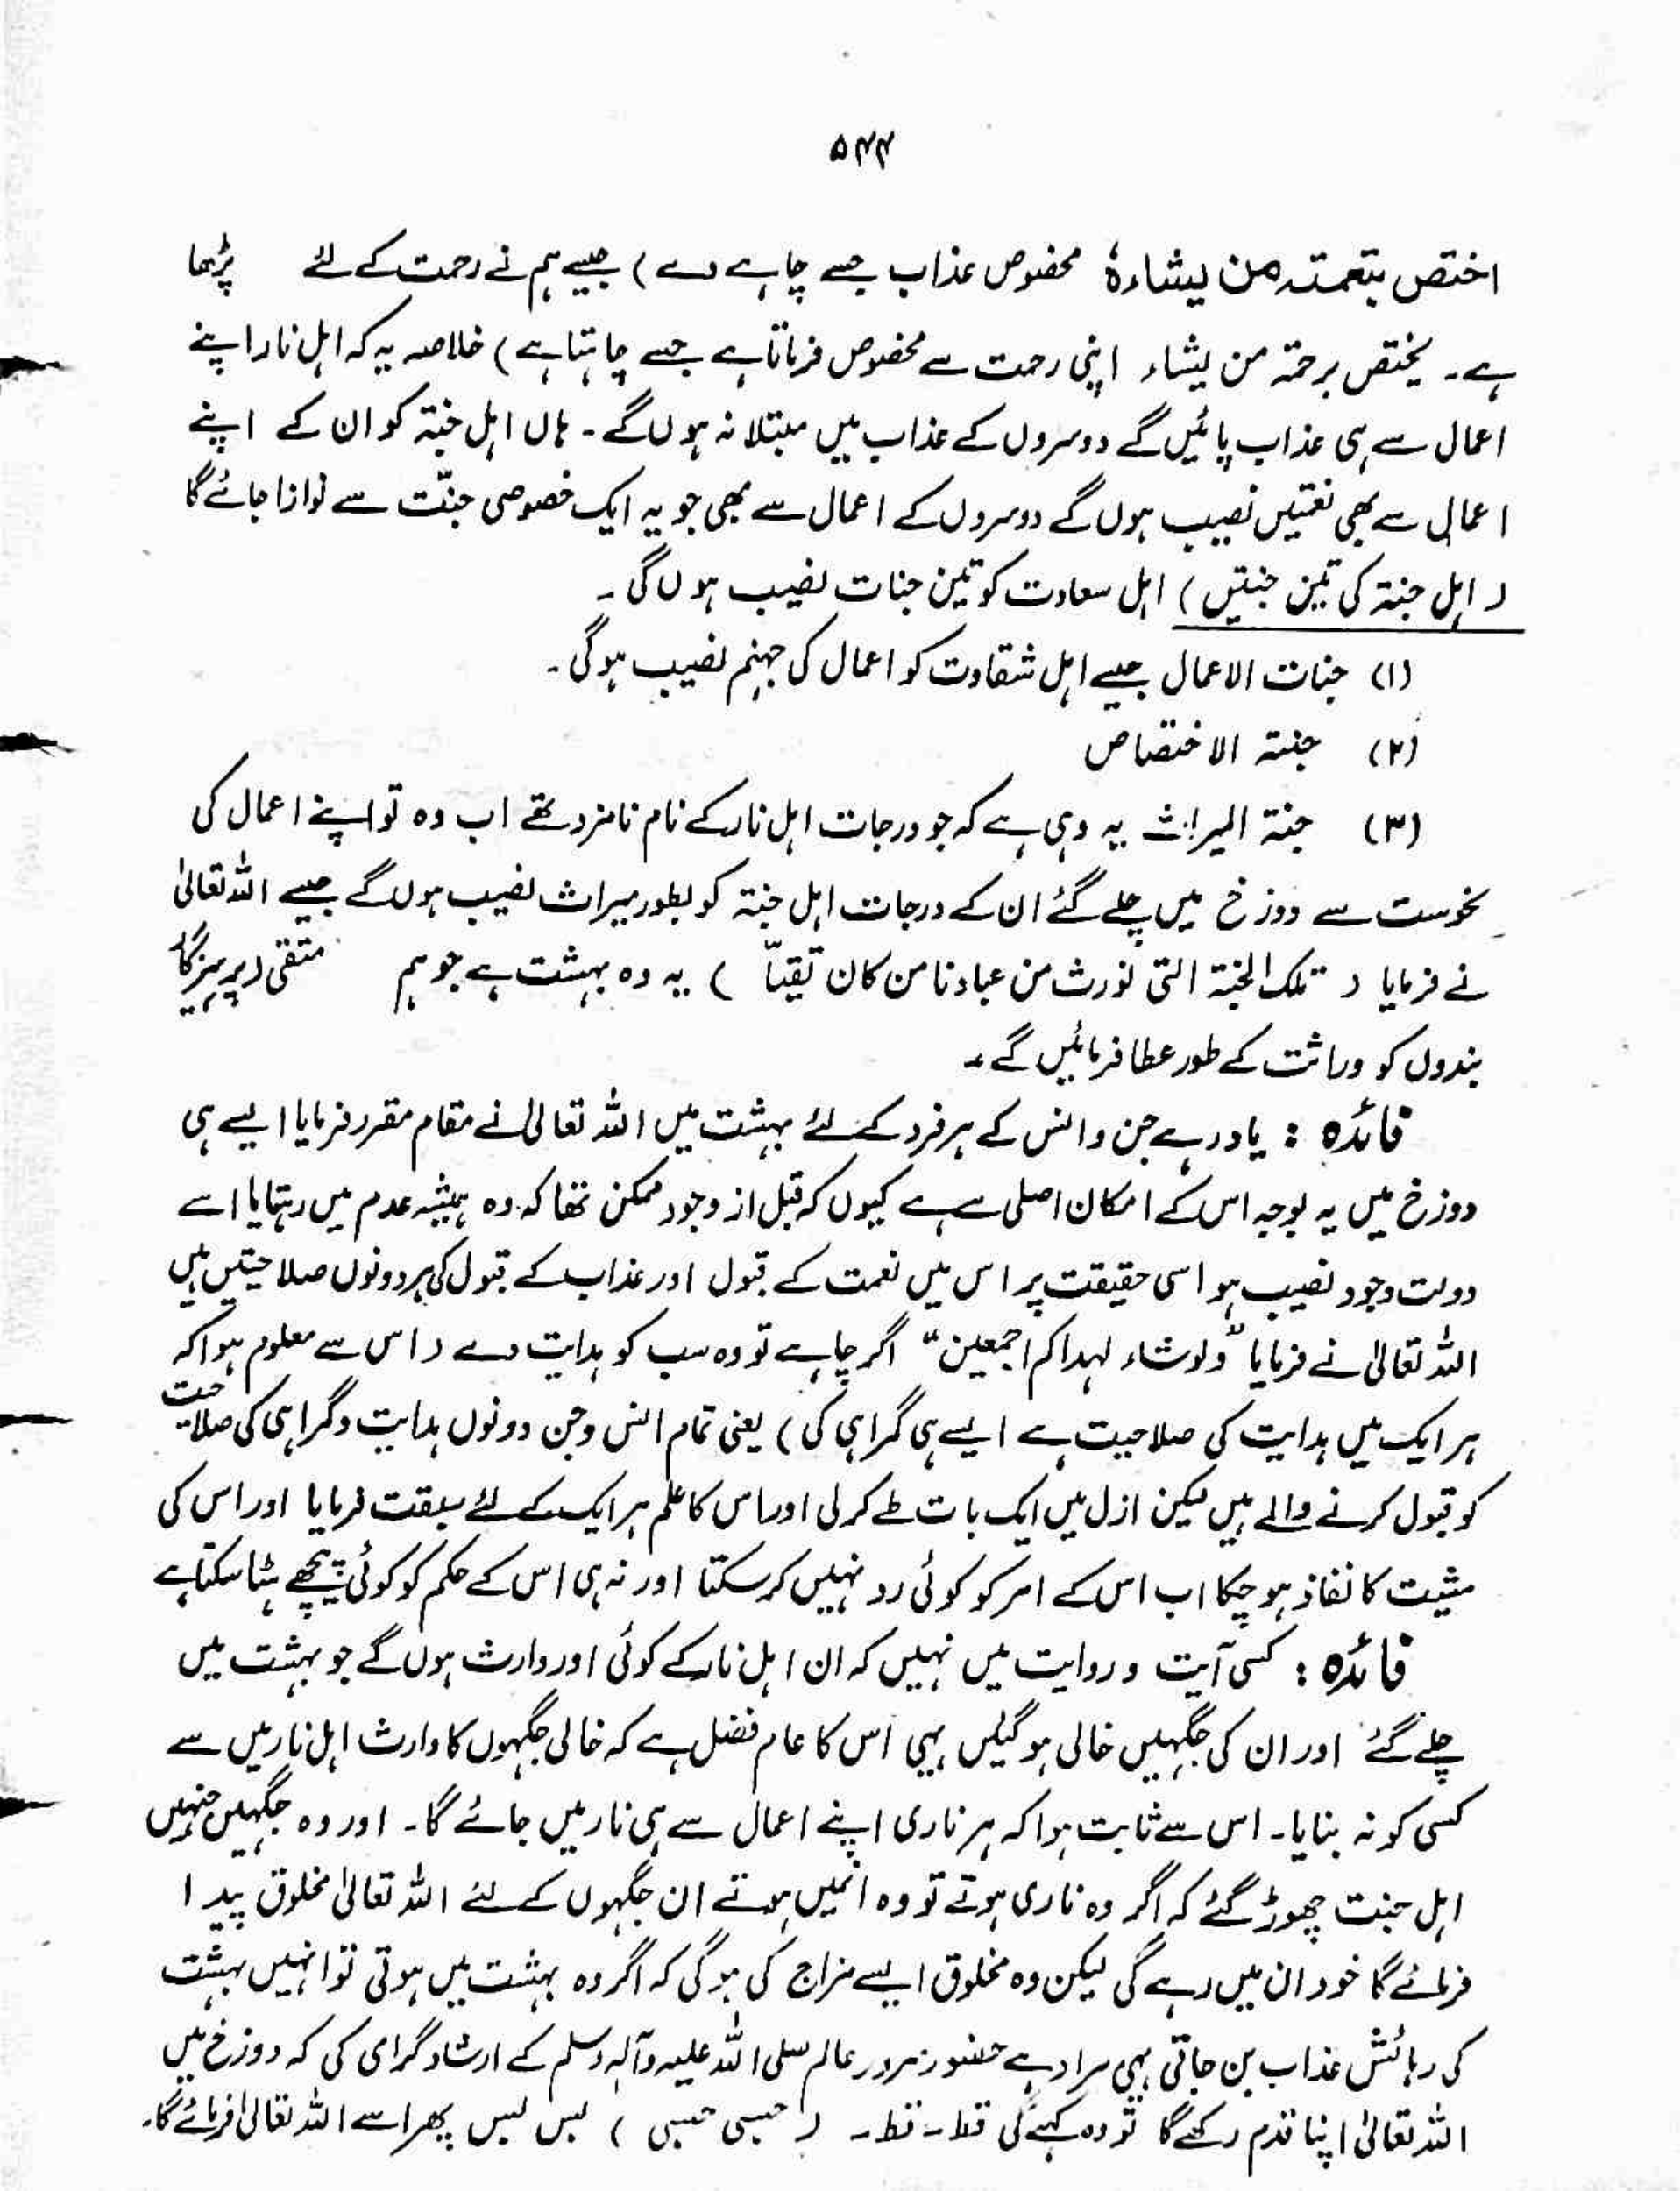 ۵۴۴
اختص بتعمتہ من یشاءہٗ مخصوص عذاب جسے چاہے دے) جیسے ہم نے رحمت کے لئے پڑھا
ہے۔ یختص برحمتہ من یشاء اپنی رحمت سے مخصوص فرماتا ہے جسے چاہتا ہے) خلاصہ یہ کہ اہل نار اپنے
اعمال سے ہی عذاب پائیں گے دوسروں کے عذاب میں مبتلا نہ ہوں گے۔ ہاں اہل جنتہ کو ان کے اپنے
اعمال سے بھی نعمتیں نصیب ہوں گے دوسروں کے اعمال سے بھی جو یہ ایک خصوصی جنّت سے نوازا جائے گا
(اہل جنتہ کی تین جنتیں) اہل سعادت کو تین جنات نصیب ہوں گی۔
(۱) جنات الاعمال جیسے اہل شقاوت کو اعمال کی جہنم نصیب ہوگی۔
(۲) جنتہ الاختصاص
(۳) جنتہ المیراث یہ وہی ہے کہ جو درجات اہل نار کے نام نامزد تھے اب وہ تو اپنے اعمال کی
نحوست سے دوزخ میں چلے گئے ان کے درجات اہل جنتہ کو بطور میراث نصیب ہوں گے جیسے اللہ تعالیٰ
نے فرمایا (تلک الجنۃ التی نورث من عبادنا من کان تقیاً) یہ وہ بہشت ہے جو ہم متقی (پرہیزگار
بندوں کو وراثت کے طور عطا فرمائیں گے۔
فائدہ : یاد رہے جن و انس کے ہر فرد کے لئے بہشت میں اللہ تعالیٰ نے مقام مقرر فرمایا ایسے ہی
دوزخ میں یہ بوجہ اس کے امکان اصلی سے ہے کیوں کہ قبل از وجود ممکن تھا کہ وہ ہمیشہ عدم میں رہتا یا اسے
دولت وجود نصیب ہو اسی حقیقت پر اس میں نعمت کے قبول اور عذاب کے قبول کی ہر دونوں صلاحیتیں ہیں
اللہ تعالیٰ نے فرمایا "ولوشاء لہداکم اجمعین" اگر چاہے تو وہ سب کو ہدایت دے (اس سے معلوم ہوا کہ
ہر ایک میں ہدایت کی صلاحیت ہے ایسے ہی گمراہی کی) یعنی تمام انس وجن دونوں ہدایت وگمراہی کی صلاحیت
کو قبول کرنے والے ہیں لیکن ازل میں ایک بات طے کرلی اور اس کا علم ہر ایک کے لئے سبقت فرمایا اور اس کی
مشیت کا نفاذ ہو چکا اب اس کے امر کو کوئی رد نہیں کر سکتا اور نہ ہی اس کے حکم کو کوئی پیچھے ہٹا سکتا ہے
فائدہ : کسی آیت و روایت میں نہیں کہ ان اہل نار کے کوئی اور وارث ہوں گے جو بہشت میں
چلے گئے اور ان کی جگہیں خالی ہو گئیں یہی اس کا عام فضل ہے کہ خالی جگہوں کا وارث اہل نار میں سے
کسی کو نہ بنایا۔ اس سے ثابت ہوا کہ ہر ناری اپنے اعمال سے ہی نار میں جائے گا۔ اور وہ جگہیں جنہیں
اہل جنت چھوڑ گئے کہ اگر وہ ناری ہوتے تو وہ انمیں ہوتے ان جگہوں کے لئے اللہ تعالیٰ مخلوق پیدا
فرمائے گا خود ان میں رہے گی لیکن وہ مخلوق ایسے مزاج کی ہو گی کہ اگر وہ بہشت میں ہوتی تو انہیں بہشت
کی رہائش عذاب بن جاتی یہی مراد ہے حضور سرور عالم صلی اللہ علیہ وآلہ وسلم کے ارشاد گرامی کی کہ دوزخ میں
اللہ تعالیٰ اپنا قدم رکھے گا تو وہ کہے گی قط۔ قط۔ (حسبی حسبی) بس بس پھر اسے اللہ تعالیٰ فرمائے گا۔